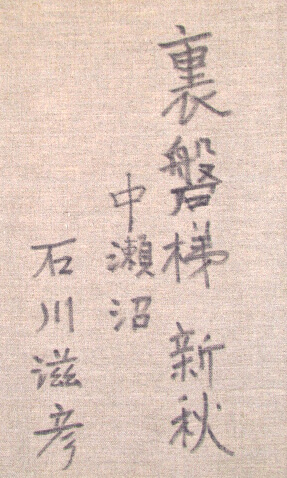 裏磐梯 新秋
中瀬沼
石川滋彦